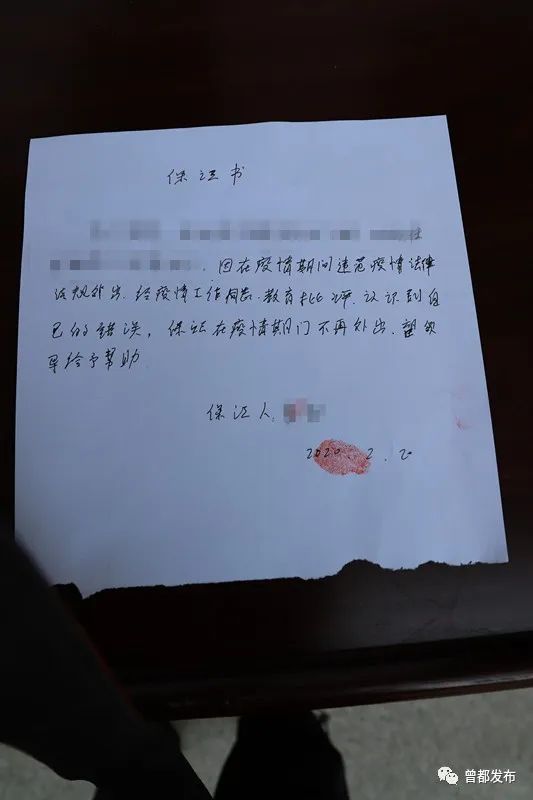 保证书
住
，因在疫情期间违范疫情法律
法规外出，经疫情工作同志，教育批评，认识到自
己的错误，保证在疫情期门不再外出，望领
导给予帮助
保证人：
2020.2.20
曾都发布